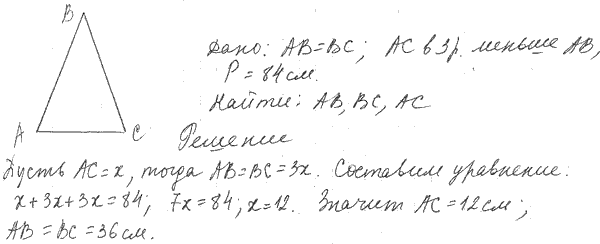 B
Дано: AB=BC; AC в 3 р. меньше AB,
P = 84 см.
Найти: AB, BC, AC
A
C
Решение
Пусть AC=x, тогда AB=BC=3x. Составим уравнение:
x+3x+3x=84; 7x=84; x=12. Значит AC=12см;
AB=BC=36см.